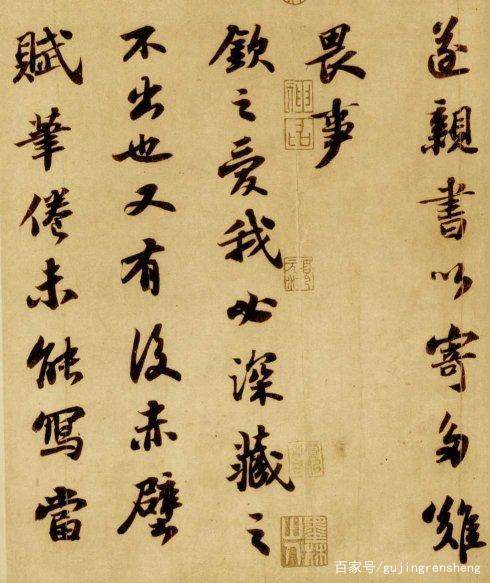 遂親書以寄多難
畏事
欽之愛我必深藏之
不出也又有後赤壁
賦筆倦未能寫當
百家号/gujingrensheng